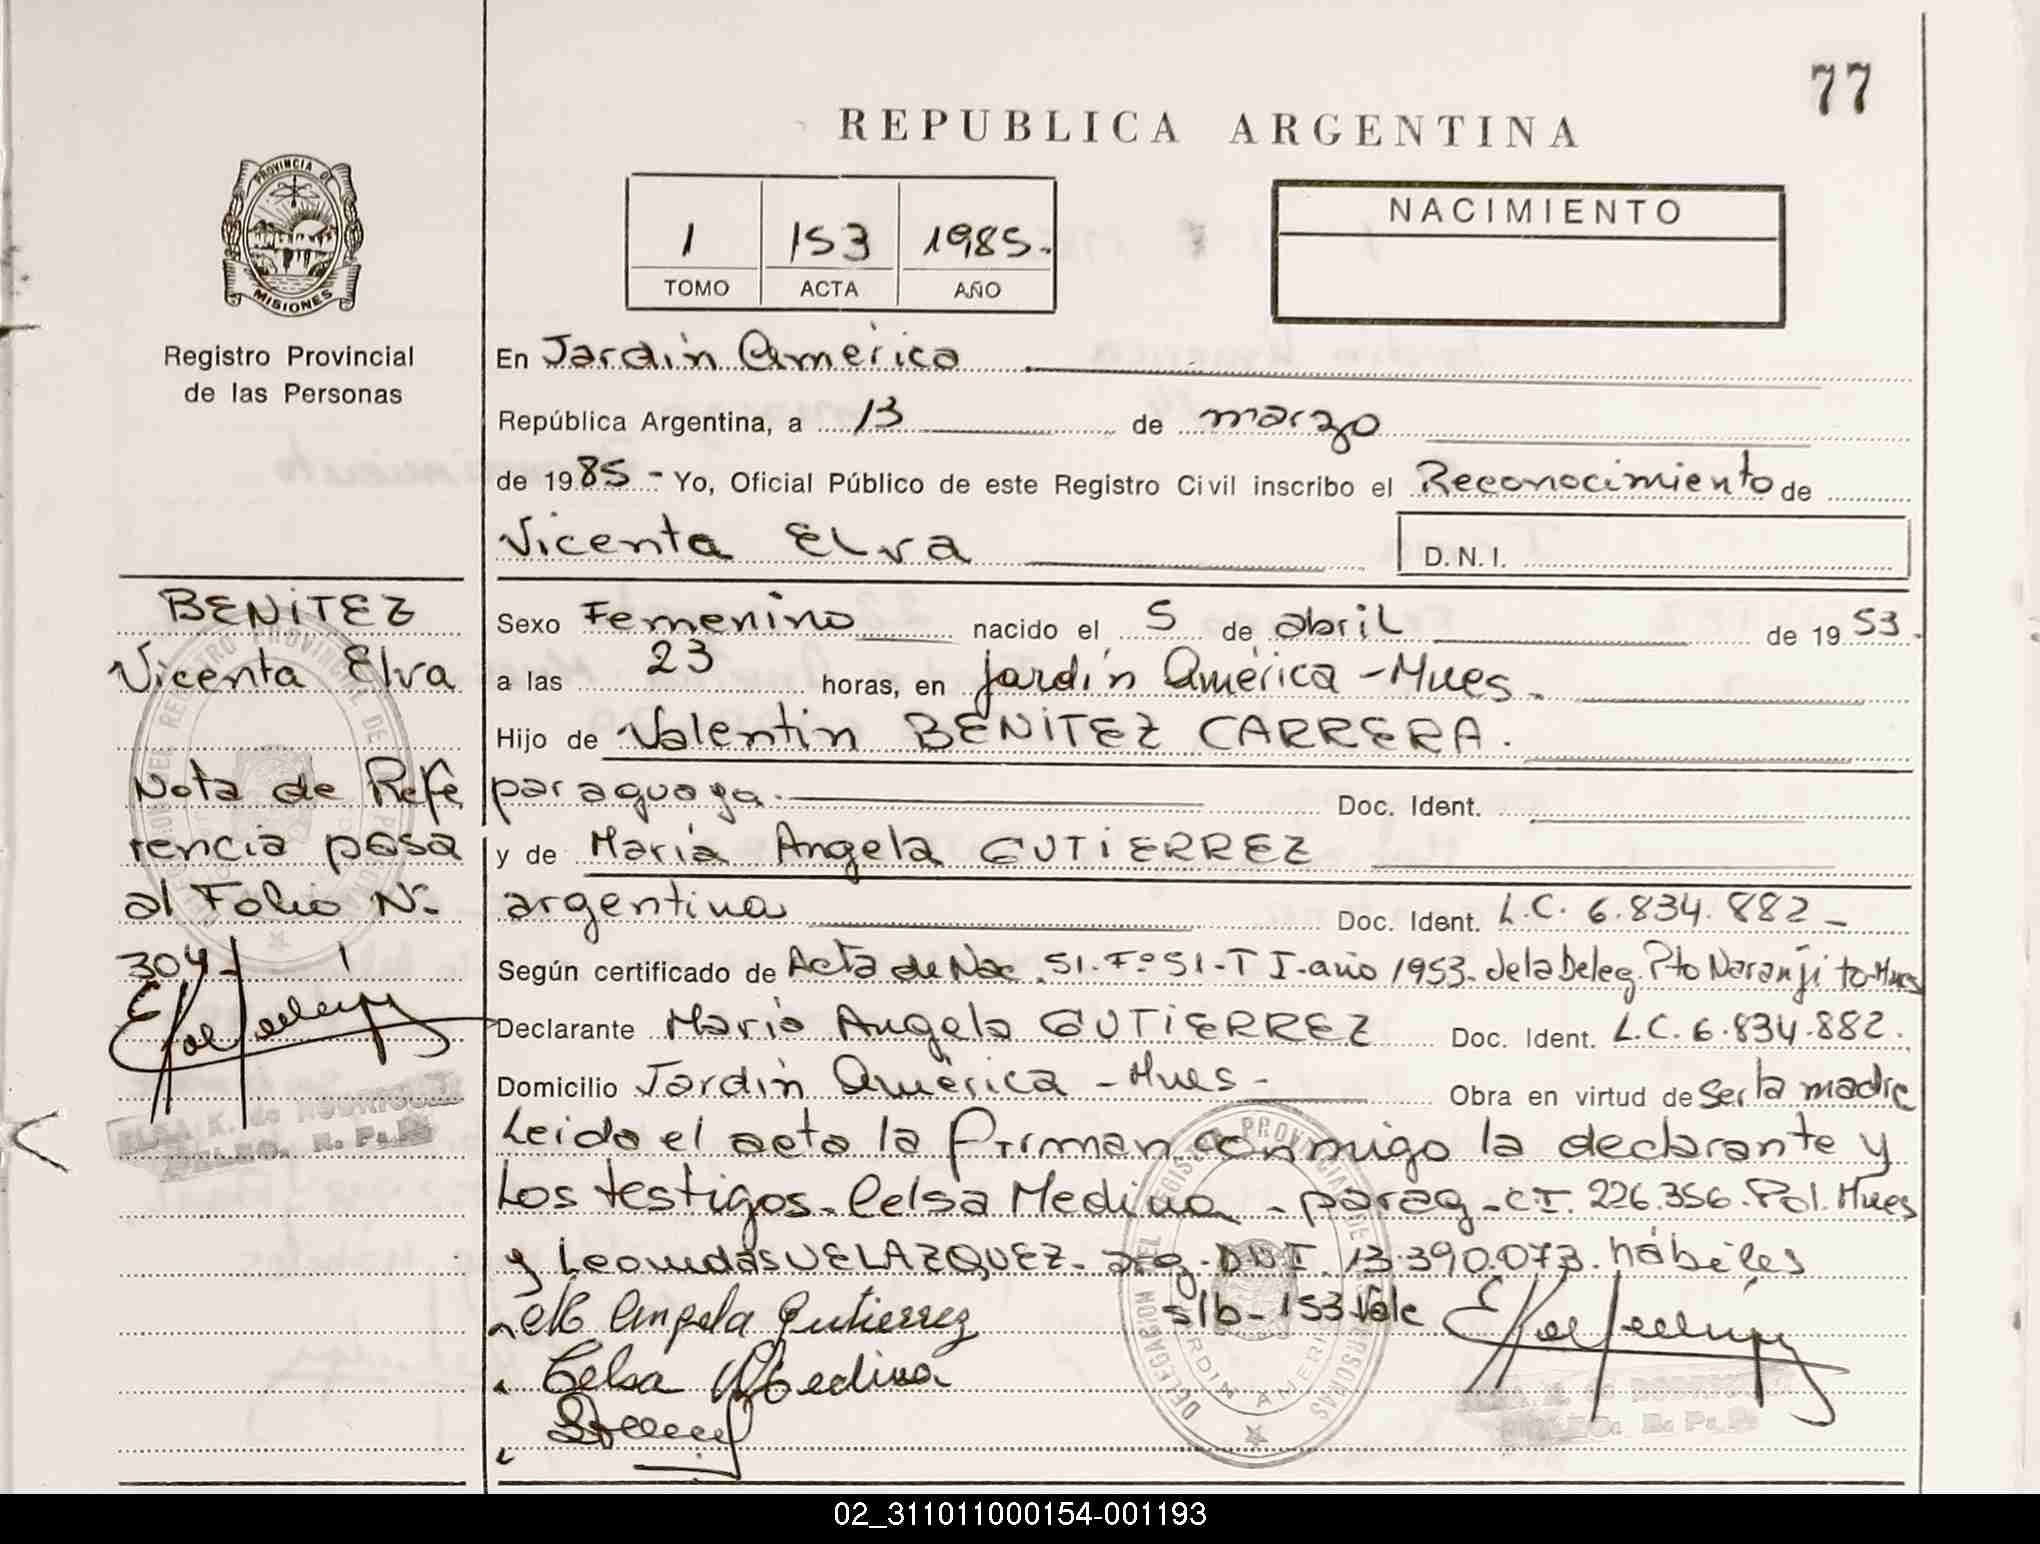 77
REPUBLICA ARGENTINA
PROVINCIA DE
MISIONES
Registro Provincial
de las Personas
1 153 1985.
TOMO ACTA AÑO
NACIMIENTO
En Jardín América
República Argentina, a 13 de marzo
de 1985 - Yo, Oficial Público de este Registro Civil inscribo el Reconocimiento de
Vicenta Elva
D.N.I.
BENITEZ
Vicenta Elva
Nota de Refe
rencia pasa
al Folio Nº
304 1
ELSA K. de RODRIGUEZ
DELEG. R. P. P.
Sexo Femenino nacido el 5 de abril de 1953.
a las 23 horas, en Jardín América - Mnes.
Hijo de Valentin BENITEZ CARRERA.
paraguaya. Doc. Ident.
y de María Angela GUTIERREZ
argentina Doc. Ident. L.C. 6.834.882 -
Según certificado de Acta de Nac. 51. Fº 51 - T I - año 1953. de la Deleg. Pto Naranjito - Mnes
Declarante María Angela GUTIERREZ Doc. Ident. L.C. 6.834.882.
Domicilio Jardín América - Mnes - Obra en virtud de Ser la madre
Leido el acta la firman conmigo la declarante y
los testigos. Celsa Medina - parag - C.I. 226.356. Pol. Mnes
y Leonidas VELAZQUEZ - arg. DNI. 13.390.073. hábiles
s/b - 153 Vale
M Angela Gutierrez
Celsa Medina
DELEGACION DEL REGISTRO PROVINCIAL DE PERSONAS
JARDIN AMERICA
ELSA K. de RODRIGUEZ
DELEG. R. P. P.
02_311011000154-001193